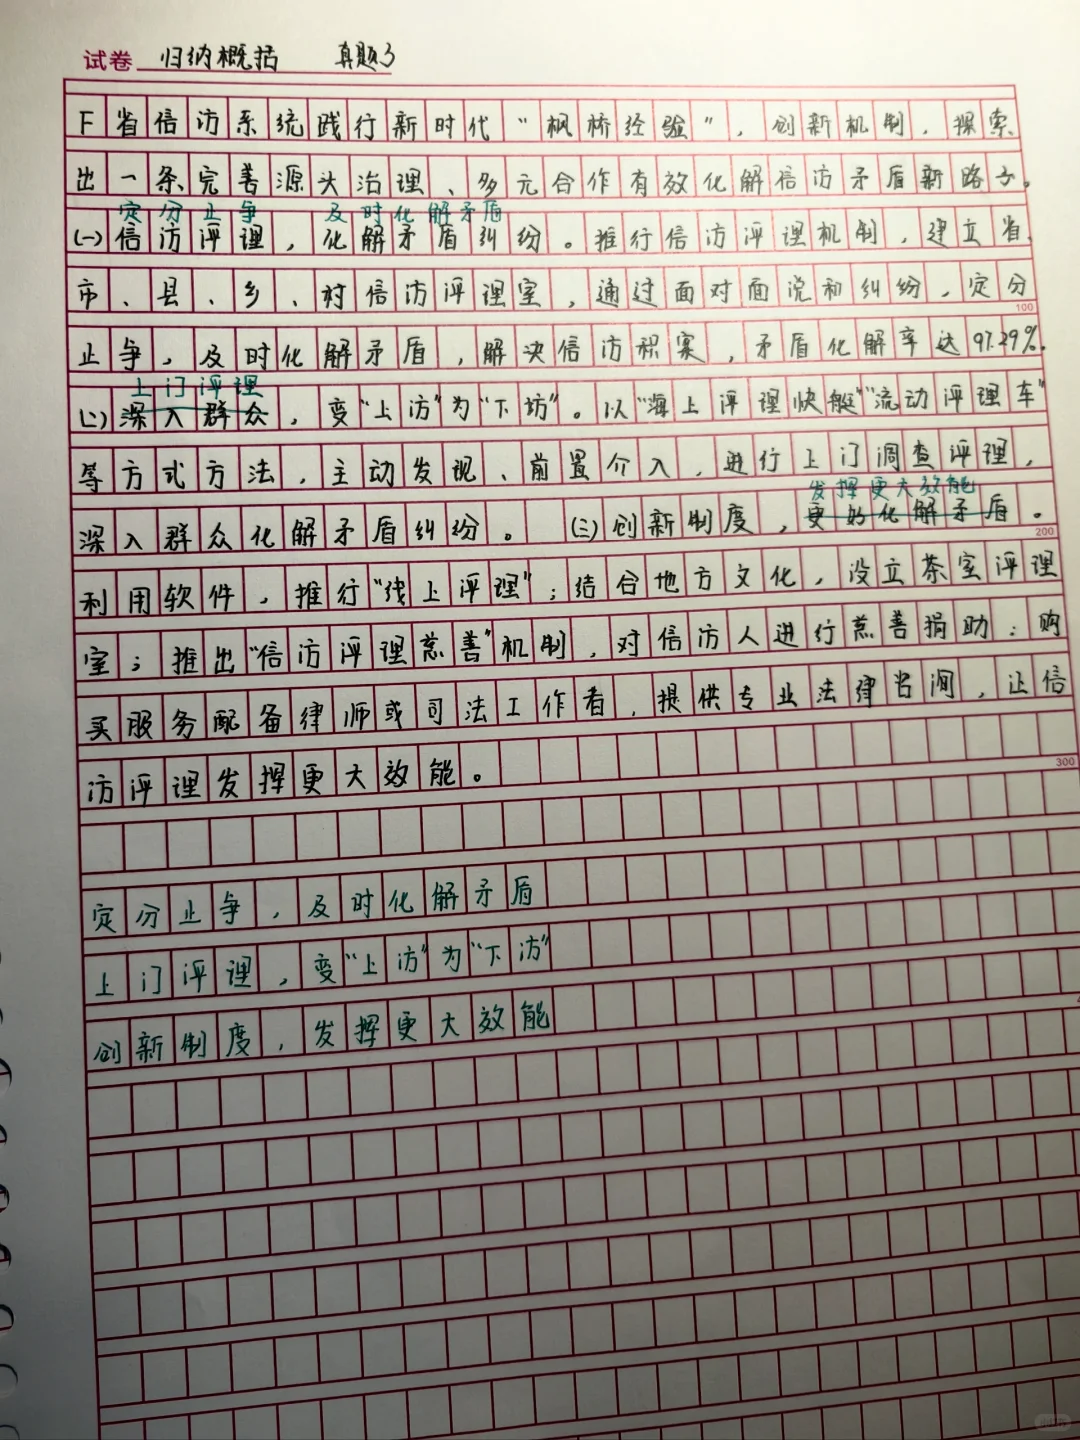 试卷 归纳概括 真题3
F省信访系统践行新时代“枫桥经验”，创新机制，探索
出一条完善源头治理、多元合作有效化解信访矛盾新路子。
定分止争 及时化解矛盾
(一)信访评理，化解矛盾纠纷。推行信访评理机制，建立省、
市、县、乡、村信访评理室，通过面对面说和纠纷，定分
100
止争，及时化解矛盾，解决信访积案，矛盾化解率达97.29%。
上门评理
(二)深入群众，变“上访”为“下访”。以“海上评理快艇”“流动评理车”
等方式方法，主动发现、前置介入，进行上门调查评理，
发挥更大效能
深入群众化解矛盾纠纷。 (三)创新制度，更好化解矛盾。
200
利用软件，推行“线上评理”；结合地方文化，设立茶室评理
室；推出“信访评理慈善”机制，对信访人进行慈善捐助；购
买服务配备律师或司法工作者，提供专业法律咨询，让信
访评理发挥更大效能。
300
定分止争，及时化解矛盾
上门评理，变“上访”为“下访”
创新制度，发挥更大效能